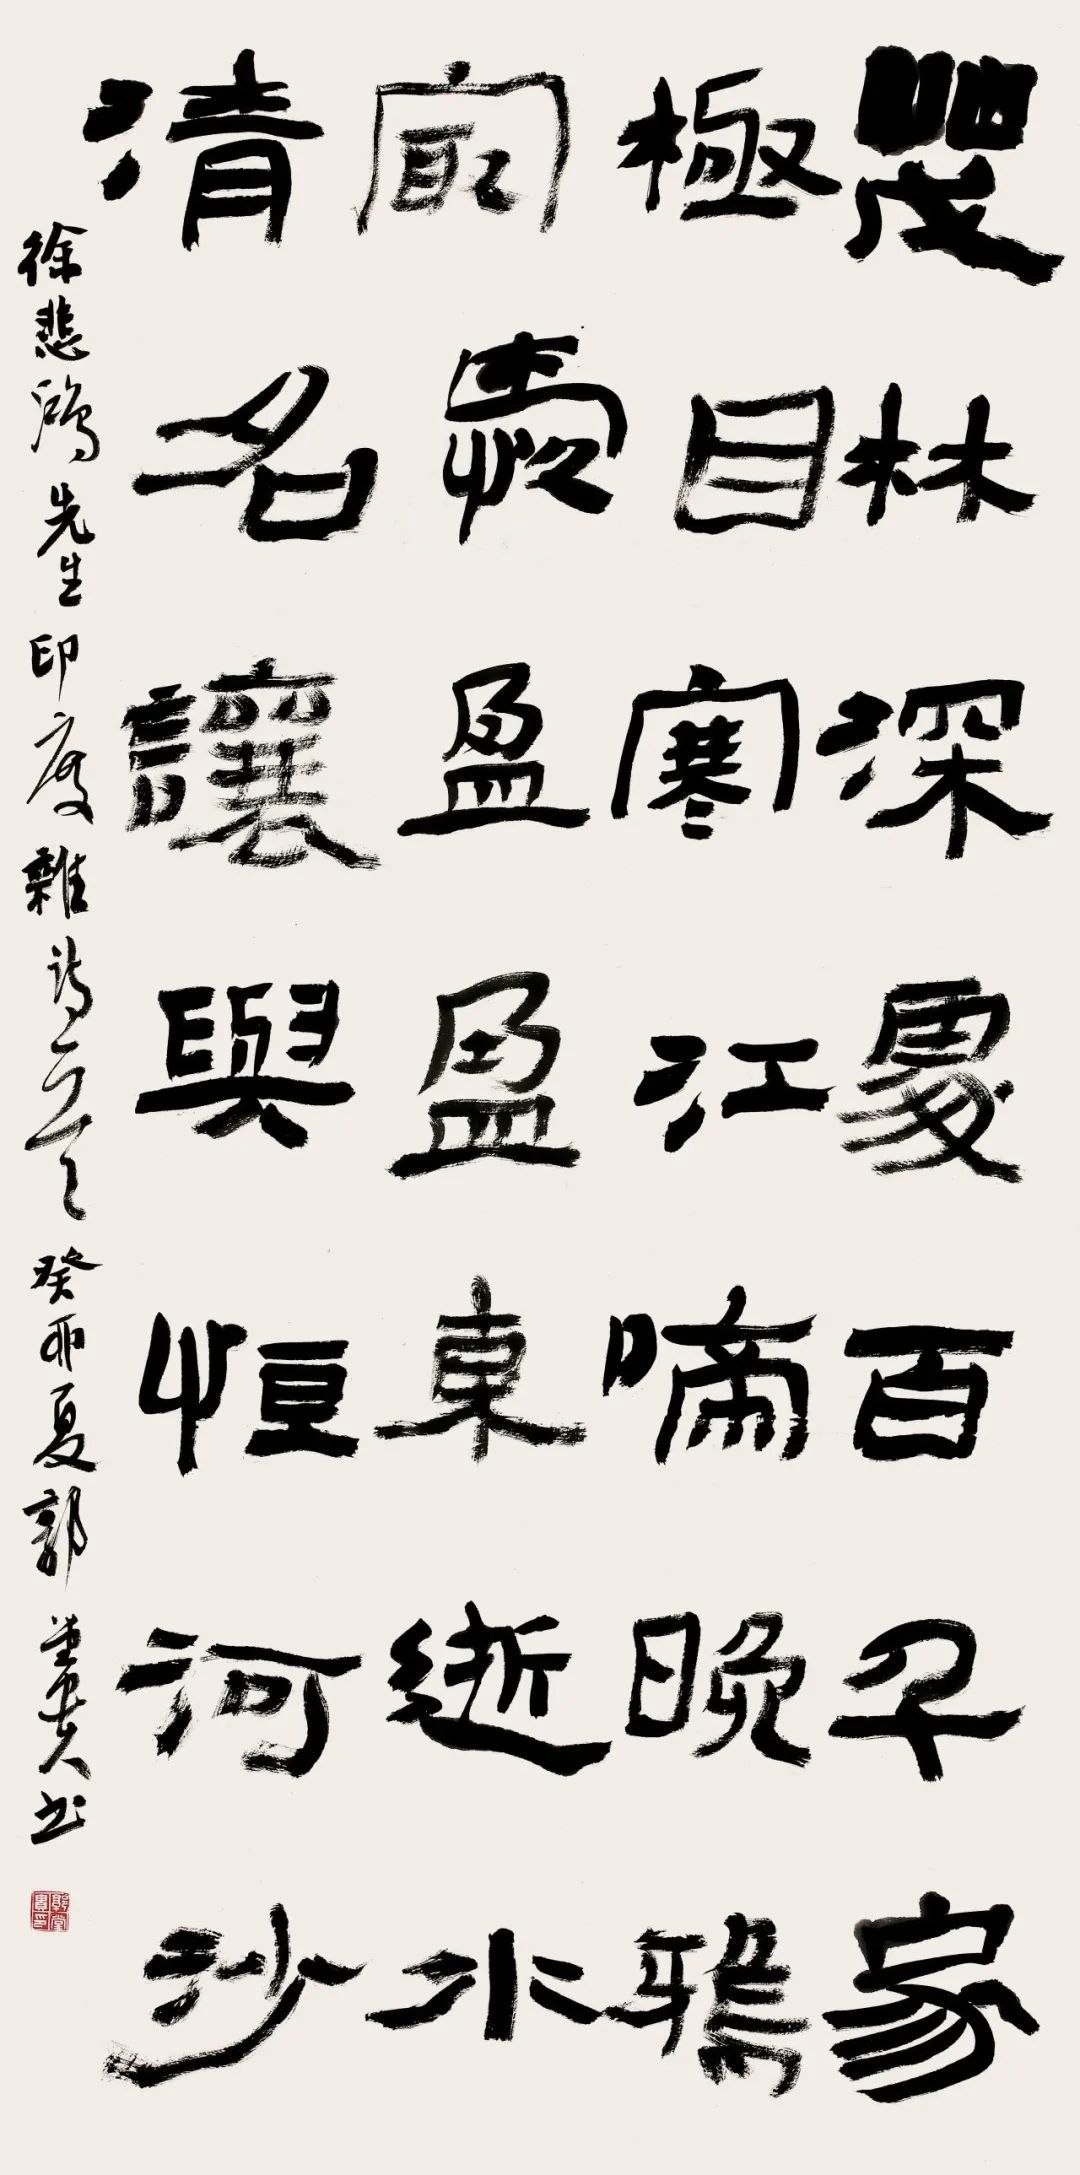 茂林深處百千家
極目寒江啼晚鴉
最愛盈盈東逝水
清名讓與恒河沙
徐悲鴻先生印度雜詩一首 癸卯夏郭堂貴书